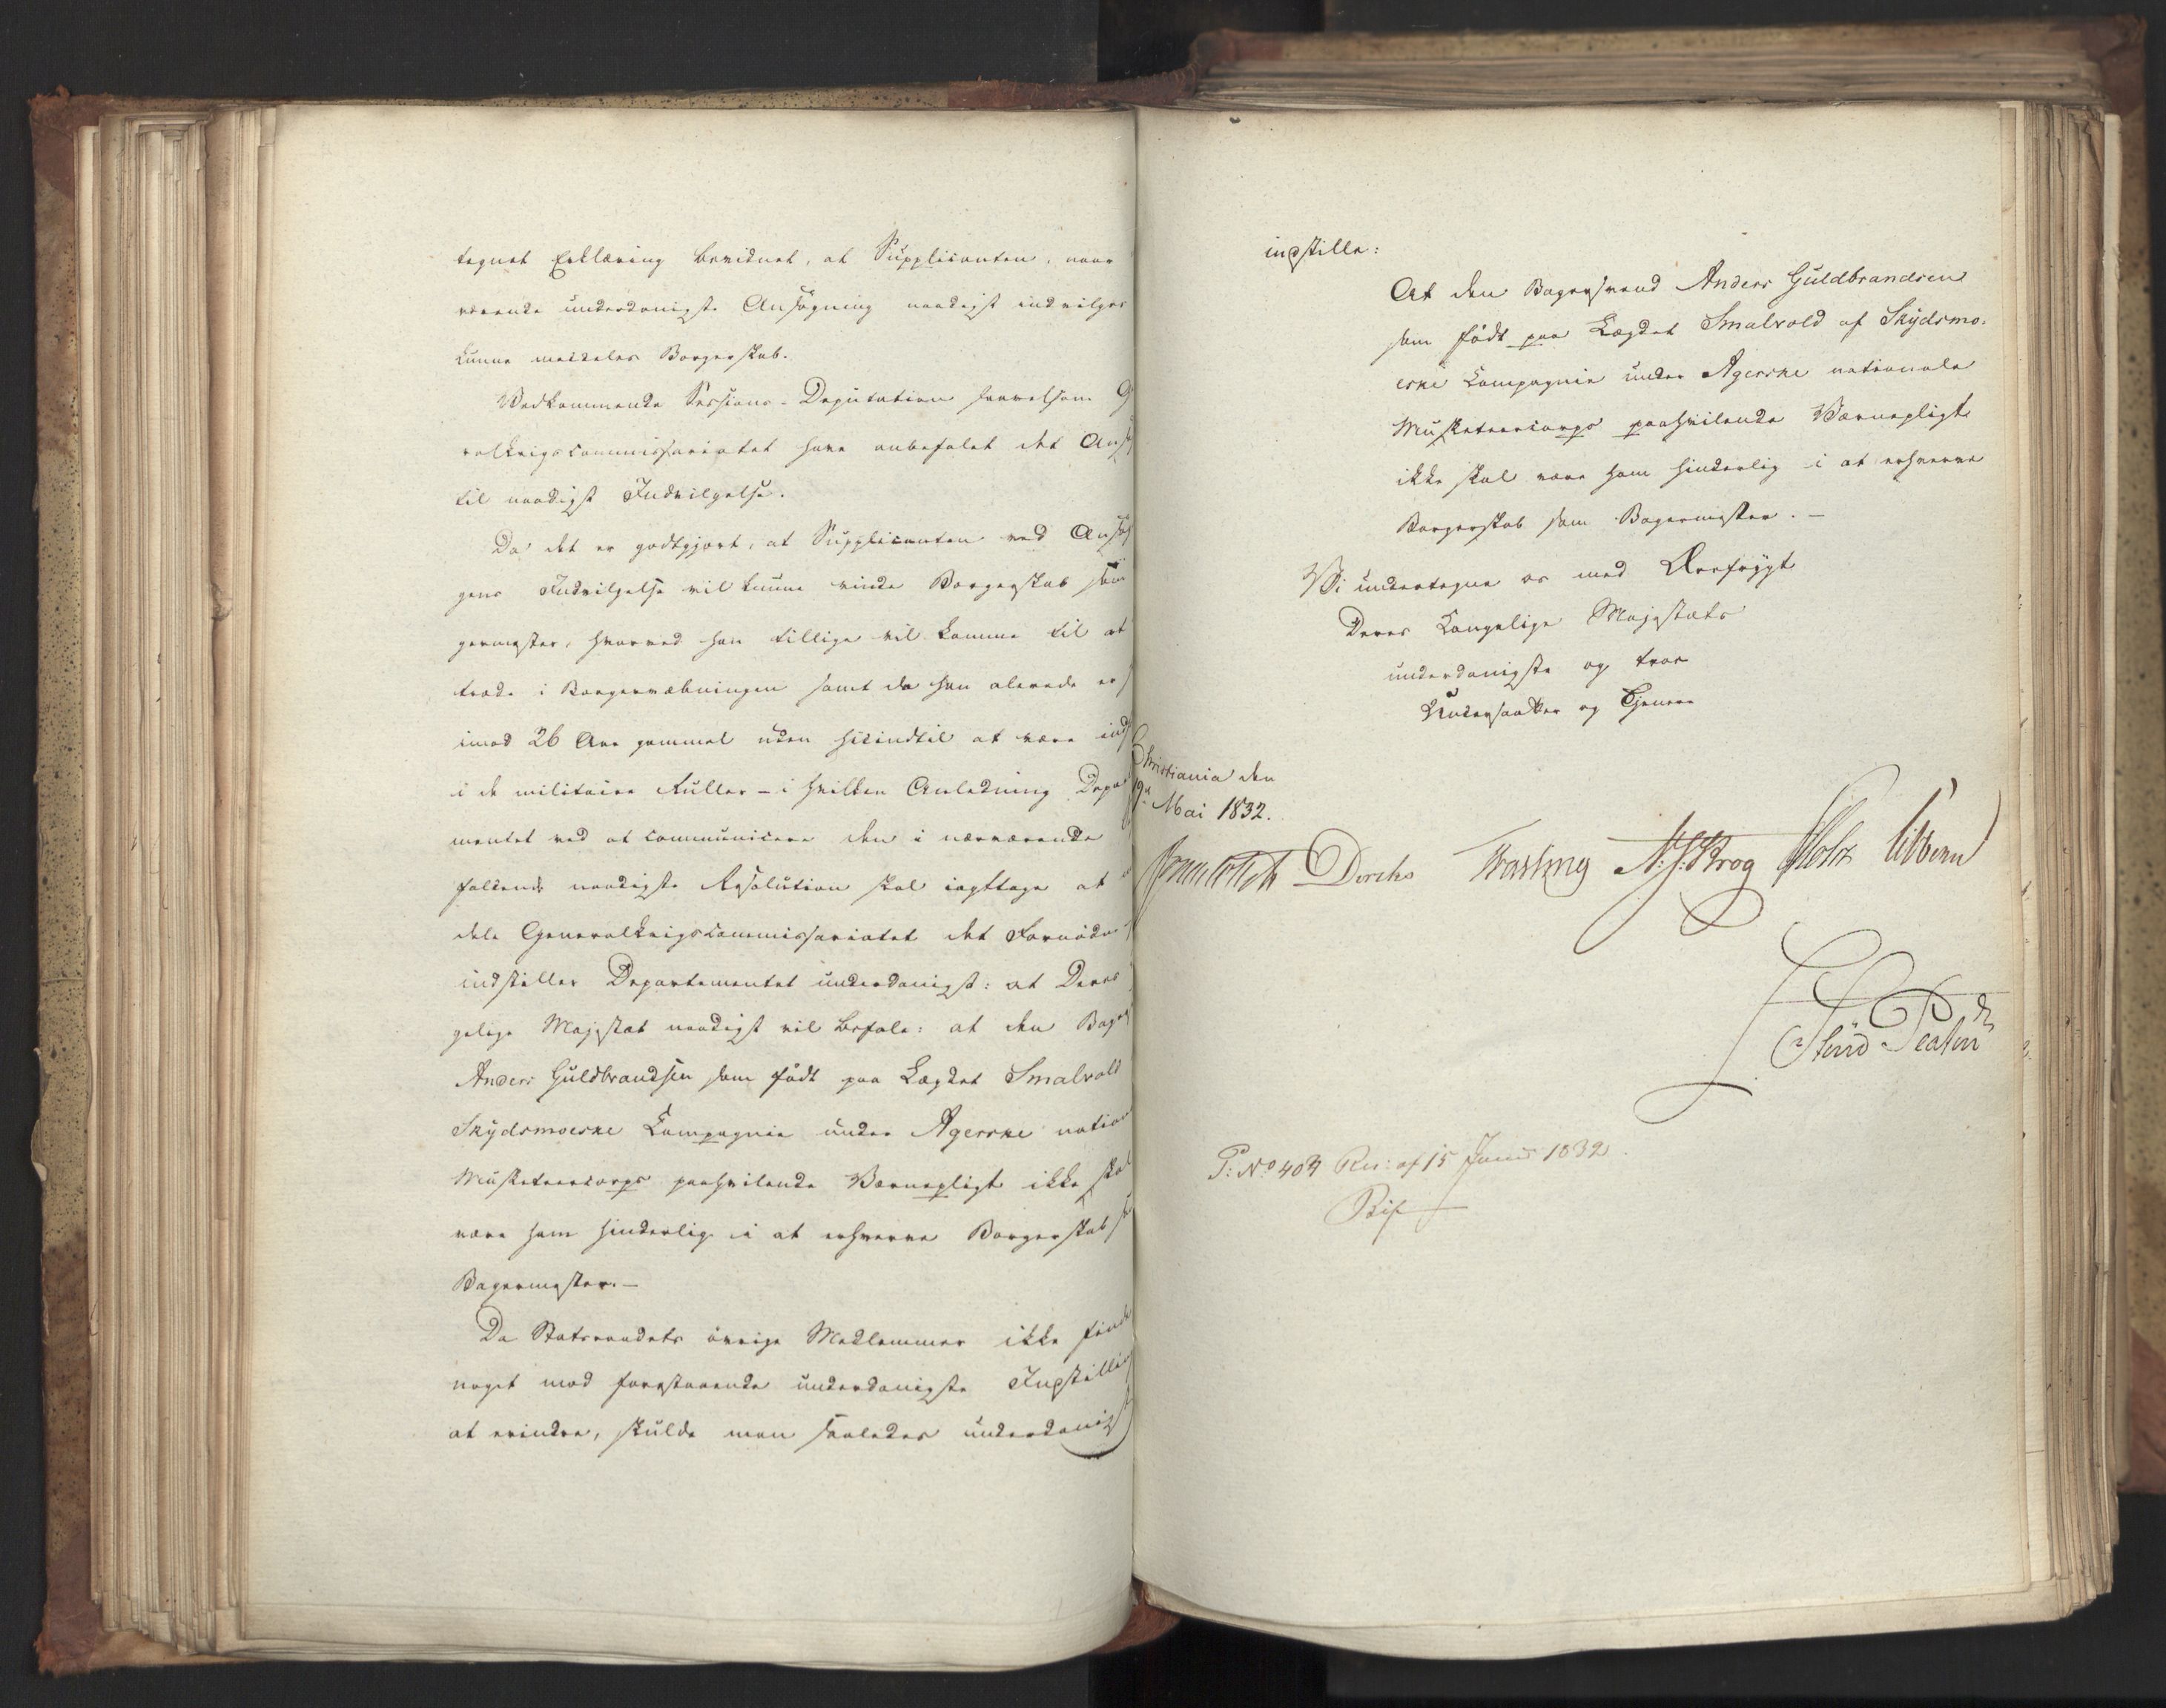 tegnet Erklæring bevidnet, at Supplicanten, naar
værende underdanigste Ansøgning naadigst indvilges
kunne meddeles Borgerskab.
Vedkommende Sessions-Deputation saavelsom G
ralkrigscommissariatet have anbefalet det Ans
til naadigst Indvilgelse.
Da det er godtgjort, at Supplicanten ved Ansø
gens Indvilgelse vil kunne vinde Borgerskab som
germester, hvorved han tillige vil komme til at
træde i Borgervæbningen samt da han alerede er
imod 26 Aar gammel uden hidindtil at være ind
i de militaire Ruller - i hvilken Anledning Depar
mentet ved at communicere den i nærværende
faldende naadigste Resolution skal iagttage at
dele Generalkrigscommissariatet det Fornødne
indstiller Departementet underdanigst: at Deres
gelige Majestæt naadigst vil befale: at den Bager
Anders Guldbrandsen som født paa Lægdet Smalvold
Skydsmoeske Compagnie under Agerske nation
Musketeercorps paahvilende Værnepligt ikke skal
være ham hinderlig i at erhverve Borgerskab
Bagermester. —
Da Statsraadets øvrige Medlemmer ikke finde
noget mod foranstaaende underdanigste Indstilling
at erindre, skulde man saaledes underdanigst
indstille:
At den Bagersvend Anders Guldbrandsen
som født paa Lægdet Smalvold af Skydsmo-
eske Compagnie under Agerske nationale
Musketeercorps paahvilende Værnepligt
ikke skal være ham hinderlig i at erhverve
Borgerskab som Bagermester. —
Vi undertegne os med Ærefrygt
Deres Kongelige Majestæts
underdanigste og troe
Undersaatter og Tjenere
Christiania den
Mai 1832.
Jonas Collett Diriks Fasting N. J. Krog Holst Vibbern
P: No 404 Res: af 15 Junii 1832.